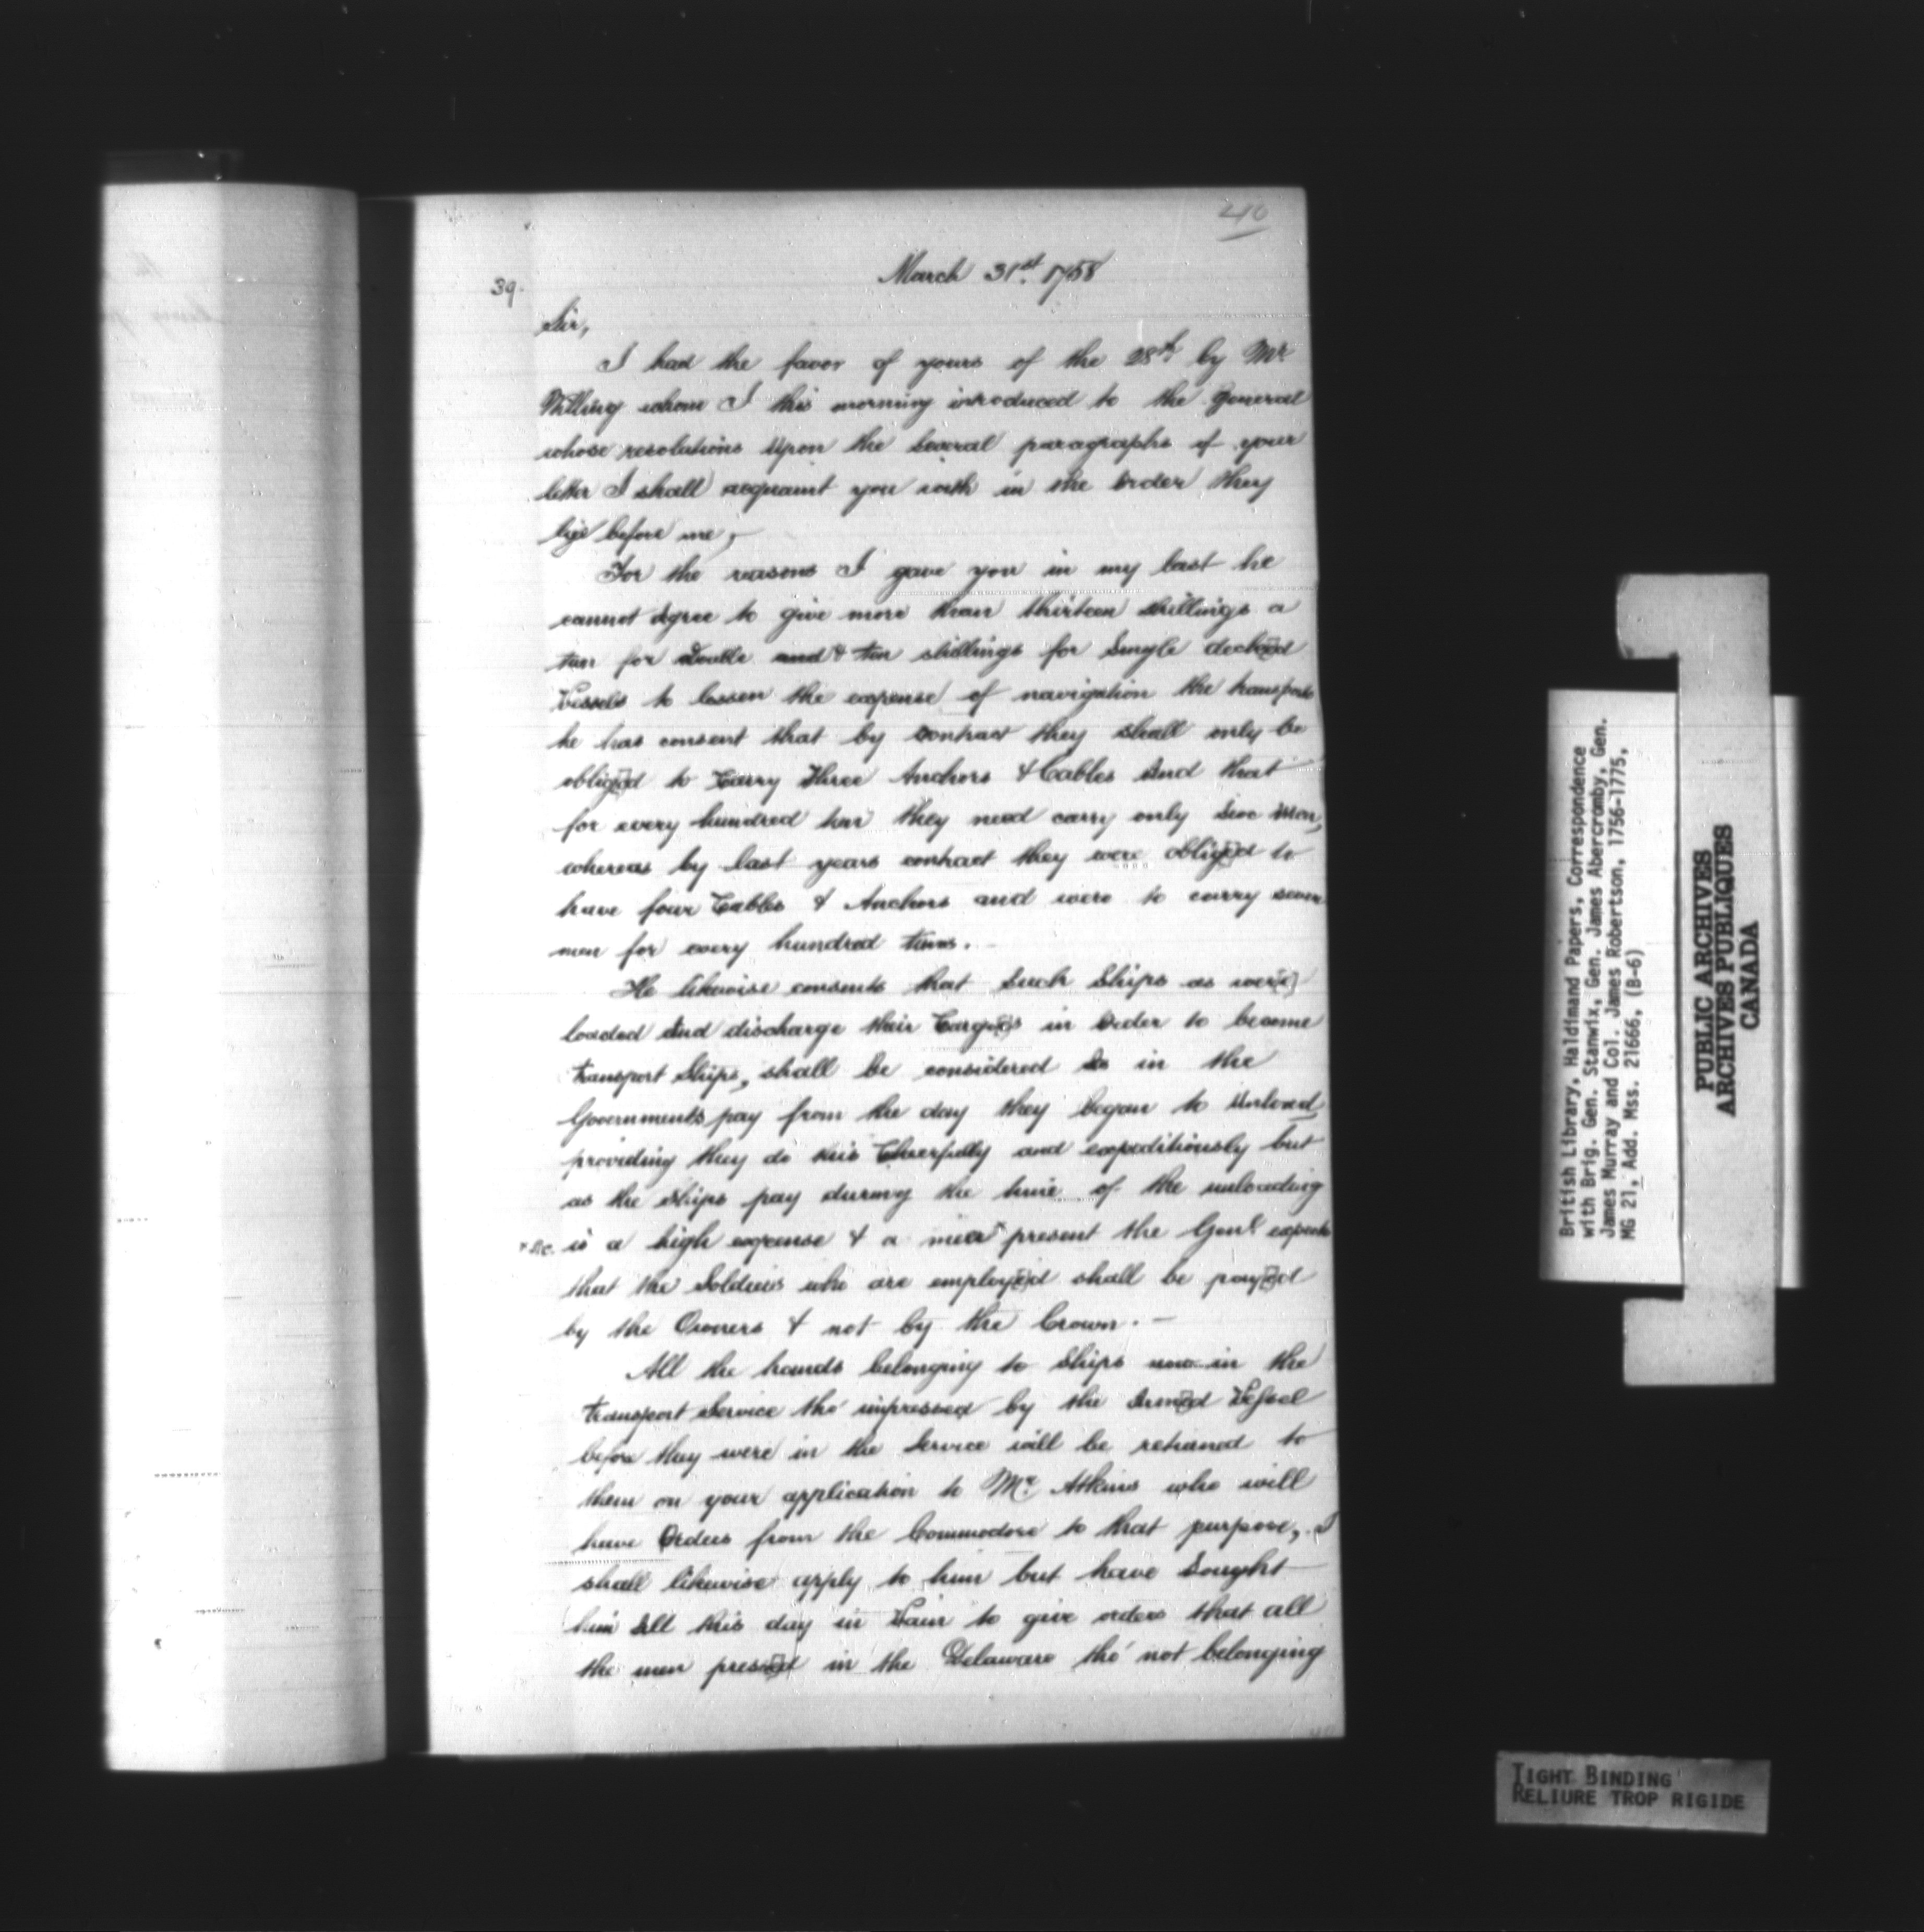 40
March 31st. 1758
39.
Sir,
I had the favor of yours of the 28th by Mr
Willing whom I this morning introduced to the General
whose resolutions Upon the Several paragraphs of your
letter I shall acquaint you with in the Order they
lye before me,
For the reasons I gave you in my last he
cannot Agree to give more than thirteen Shillings a
ton for Double and & ten shillings for Single decked
Vessels to lessen the expense of navigation the transports
he has consent that by Contract they shall only be
obliged to Carry Three Anchors & Cables And that
for every hundred ton they need carry only Six Men,
whereas by last years contract they were obliged to
have four Cables & Anchors and were to carry seven
men for every hundred tuns.
He likewise consents that Such Ships as were
loaded And discharge their Cargoes in Order to become
transport Ships, shall be considered As in the
Governments pay from the day they began to Unload
providing they do this Cheerfully and expeditiously but
as the Ships pay during the time of the unloading
* Sic. is a high expense & a mear* present the Genl. expects
that the Soldiers who are employed shall be payed
by the Owners & not by the Crown. —
All the hands belonging to Ships now in the
transport Service tho' impressed by the Armed Vessel
before they were in the Service will be returned to
them on your application to Mr. Atkins who will
have Orders from the Commodore to that purpose, I
shall likewise apply to him but have Sought
him All this day in Vain to give orders that all
the men pressed in the Delaware tho' not belonging
British Library, Haldimand Papers, Correspondence
with Brig. Gen. Stanwix, Gen. James Abercromby, Gen.
James Murray and Col. James Robertson, 1756-1775,
MG 21, Add. Mss. 21666, (B-6)
PUBLIC ARCHIVES
ARCHIVES PUBLIQUES
CANADA
TIGHT BINDING
RELIURE TROP RIGIDE